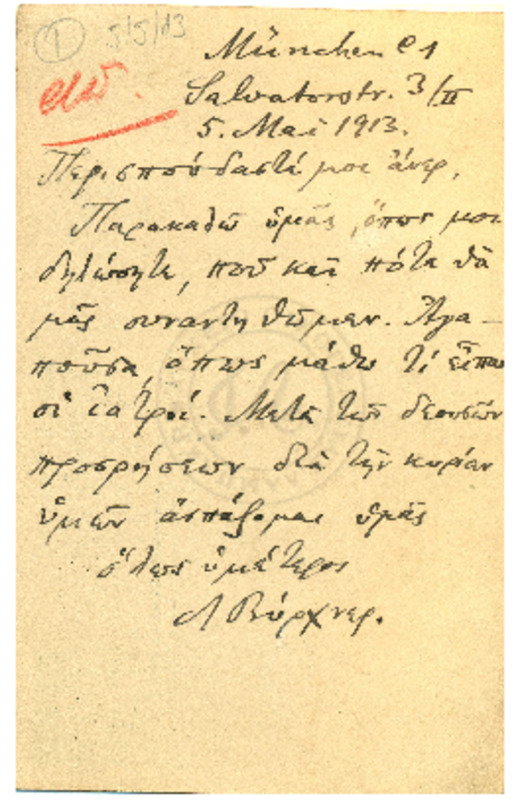 1 5/5/13
München C 1
Salvatorstr. 3/II
5. Mai 1913.
Περισπούδαστέ μοι ἄνερ,
Παρακαλῶ ὑμᾶς, ὅπως μοι
δηλώσητε, ποῦ καὶ πότε θὰ
μᾶς συναντηθῶμεν. Ἀγα-
ποῦσα, ὅπως μάθω τί εἶπον
οἱ ἰατροί. Μετὰ τῶν δεουσῶν
προσρήσεων διὰ τὴν κυρίαν
ὑμῶν ἀσπάζομαι ὑμᾶς
ὅλως ὑμέτερος
Λ Βύρχνερ.